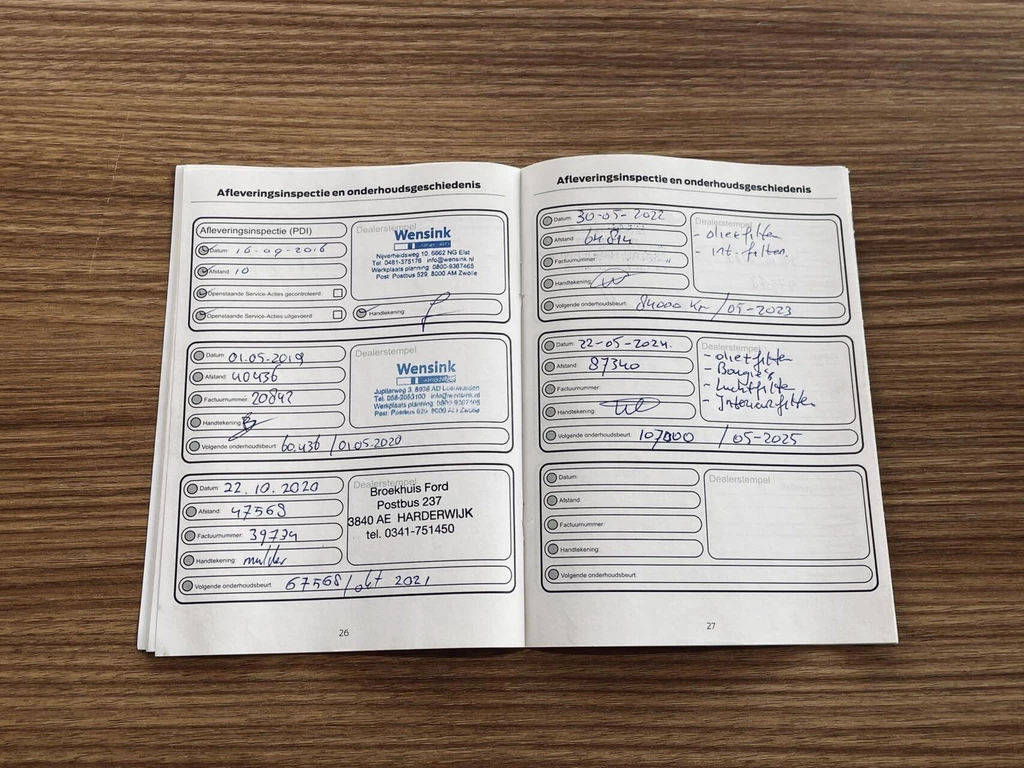 Afleveringsinspectie en onderhoudsgeschiedenis
Afleveringsinspectie (PDI)
Datum: 16-09-2016
Afstand: 10
Openstaande Service-Acties gecontroleerd
Openstaande Service-Acties uitgevoerd
Dealerstempel
Wensink
Nijverheidsweg 10, 6662 NG Elst
Tel. 0481-375176 info@wensink.nl
Werkplaats planning: 0800-9367465
Post: Postbus 529, 8000 AM Zwolle
Handtekening:
Datum: 01.05.2019
Afstand: 40436
Factuurnummer: 20842
Handtekening:
Volgende onderhoudsbeurt: 60.436 / 01.05.2020
Dealerstempel
Wensink
Jupiterweg 3, 8938 AD Leeuwarden
Tel. 058-2053100 info@wensink.nl
Werkplaats planning: 0800-9367465
Post: Postbus 529, 8000 AM Zwolle
Datum: 22.10.2020
Afstand: 47568
Factuurnummer: 39774
Handtekening: mulder
Volgende onderhoudsbeurt: 67568 / okt 2021
Dealerstempel
Broekhuis Ford
Postbus 237
3840 AE HARDERWIJK
tel. 0341-751450
26
Afleveringsinspectie en onderhoudsgeschiedenis
Datum: 30-05-2022
Afstand: 64.814
Factuurnummer:
Handtekening:
Volgende onderhoudsbeurt: 84000 Km / 05-2023
Dealerstempel
- olie+filter
- int. filter.
Datum: 22-05-2024.
Afstand: 87340
Factuurnummer:
Handtekening:
Volgende onderhoudsbeurt: 107000 / 05-2025
Dealerstempel
- olie+filter
- Bougies
- Luchtfilter
- Interieurfilter
Datum:
Afstand:
Factuurnummer:
Handtekening:
Volgende onderhoudsbeurt:
Dealerstempel
27